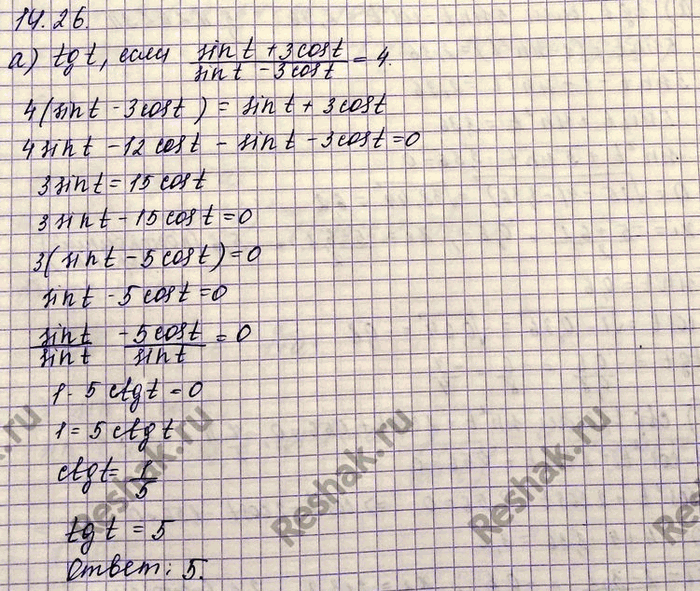 14.26.
а) tg t, если (sin t + 3cos t)/(sin t - 3cos t) = 4.
4(sin t - 3cos t) = sin t + 3cos t
4 sin t - 12 cos t - sin t - 3cos t = 0
3 sin t = 15 cos t
3 sin t - 15 cos t = 0
3(sin t - 5 cos t) = 0
sin t - 5 cos t = 0
sin t/sin t - 5 cos t/sin t = 0
1 - 5 ctg t = 0
1 = 5 ctg t
ctg t = 1/5
tg t = 5
Ответ: 5.
Reshak.ru
Reshak.ru
Reshak.ru